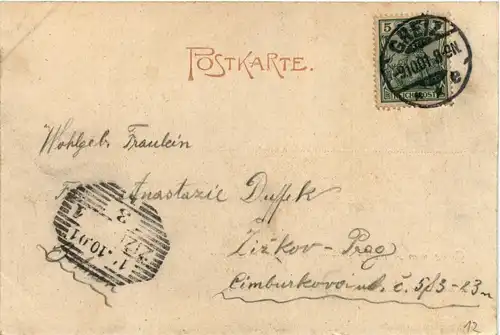 POSTKARTE.
5
REICHSPOST
GREIZ
10.01
e
Wohlgeb. Fräulein
Anastazie Dussek
Žižkov - Prag
Cimburkova ul. č.
10.01
12